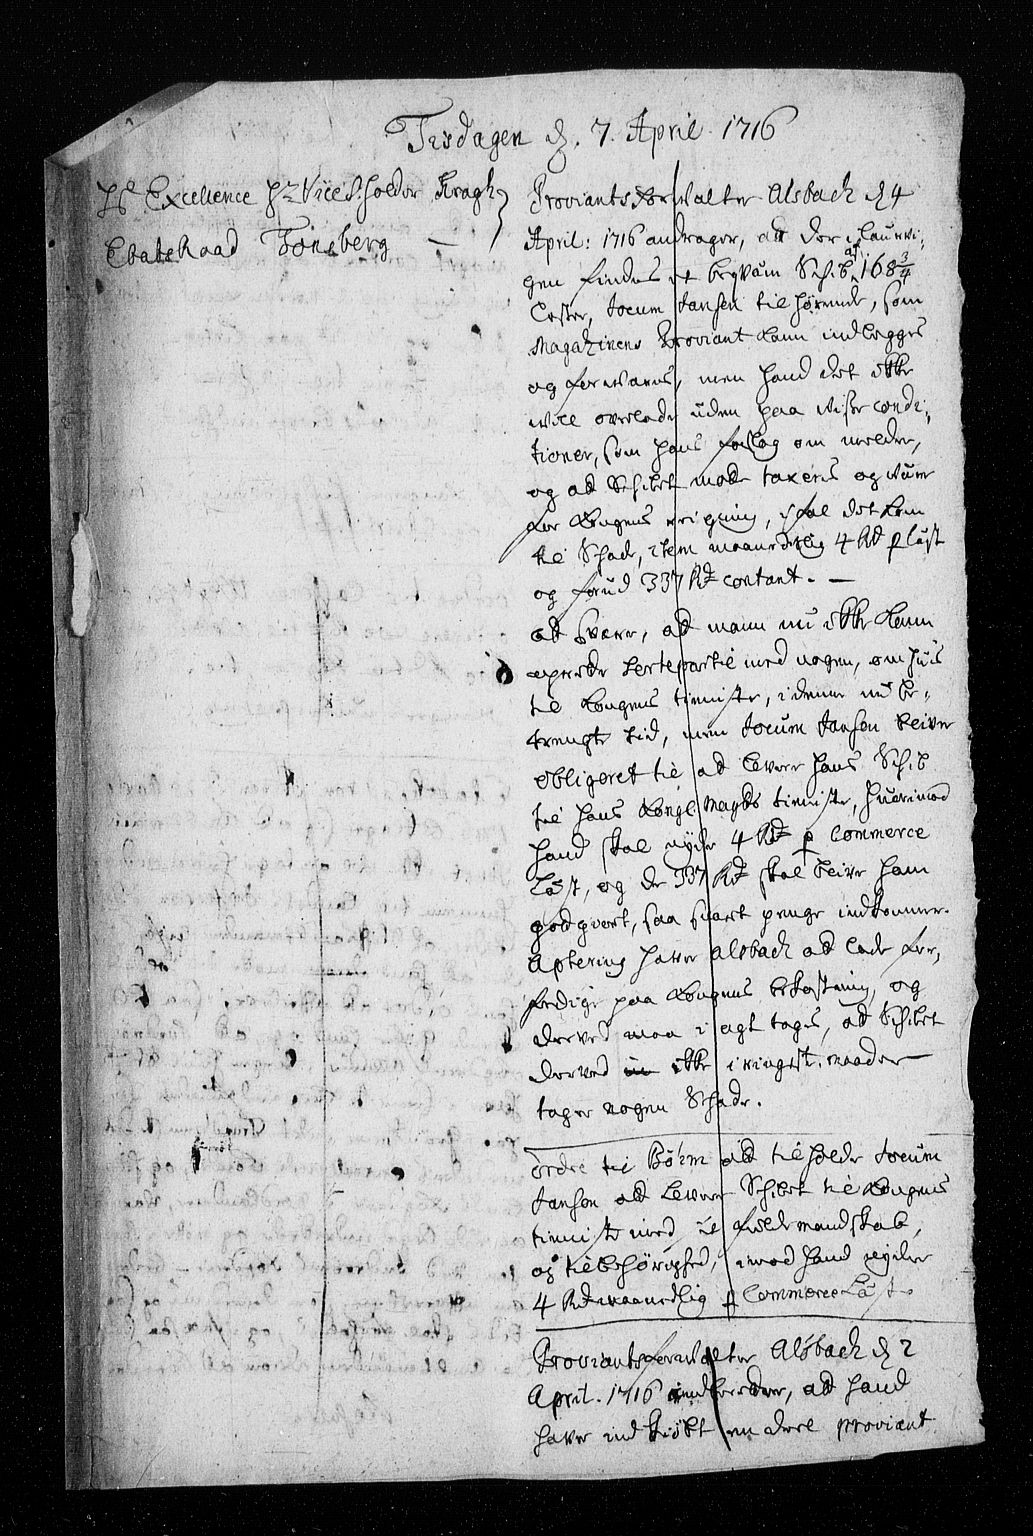 Tisdagen d. 7. April 1716
Hs Excellence Hr Vice St:holder Kragh
EtatsRaad Tønsberg —
Proviantsforwalter Alsbach d 4
April: 1716 andrager, at der i Laurvi,
gen findes et beqvam Schib af 168 3/4
Lester, Jocum Jansen tilhørende, som
Magazinens Proviant kann indlegges
og forwares, men hand det ikke
will overlade uden paa wisse condi,
tioner, som hans forslag om melder,
og at Schibet motte taxeris og være
for Kongens risiging, ifal det kom
til Schade, item maanedtlig 4 Rd p læst
og forud 337 Rd contant. —
at svare, at mann nu ikke kann
oprette Certepartie med nogen, om huis
til Kongens tienniste, i denne nu be,
trengte tid, men Jocum Jansen bliver
obligeret til at levere hans Schib
til hans Kongl. Mayts tienniste, huorimod
hand skal nyde 4 Rd p Commerce
Læst, og de 337 Rd skal blive ham
godgiort, saa snart penge indkommer.
Aptering hafver Alsbach at lade for,
ferdige paa Kongens bekostning, og
derved maa i agt tages, at Schibet
derved ikke i ringeste maader
tager nogen Schade.
Ordre til Bøhm at tilholde Jocum
Jansen at levere Schibet til Kongens
tienniste med sit fulde mandskab,
og tilbehørighed, imod hand nyder
4 Rd maanedtlig p Commerce Læst.
Proviantsforwalter Alsbach d 2
April. 1716 indberetter, at hand
hafver ind kiøbt en deel proviant